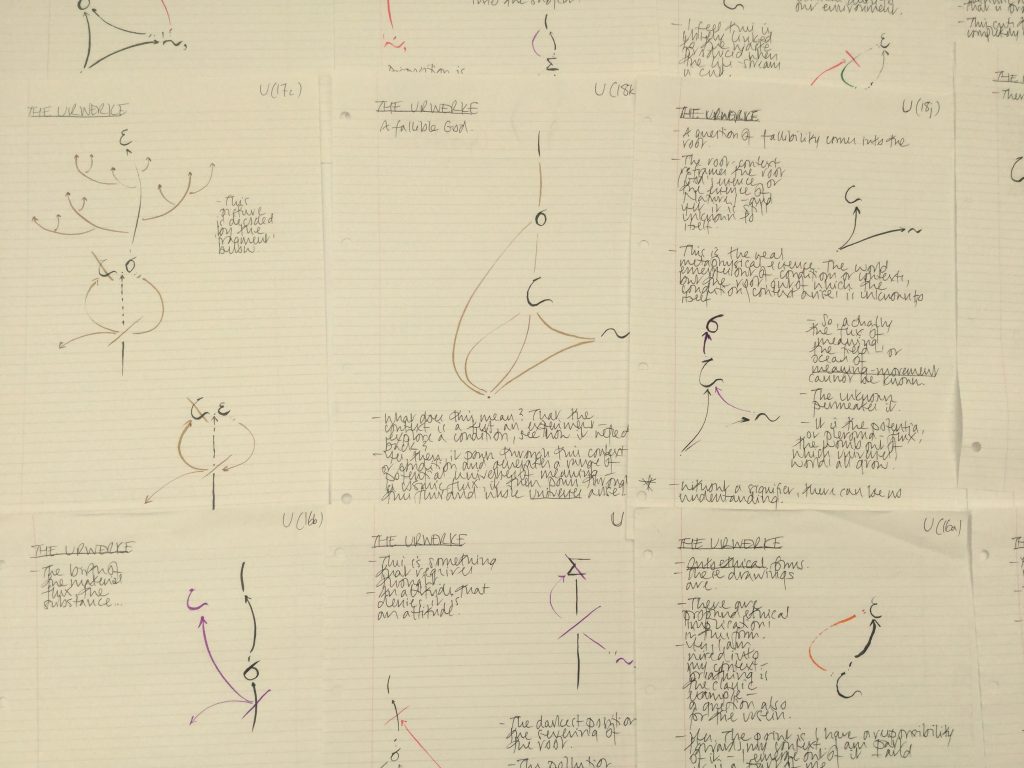 our environment.
- I feel this is
produced when
the life-stream
is cut.
U(17c)
THE URWERKE
- This
picture
is decided
on the
fragment
below
U(18k
THE URWERKE
A fallible God.
- What does this mean? That the
context is a test, an experiment -
explore a condition, see how it
- Yes then, it pours through this context
or condition and generates a range of
potential universes of meaning,
a cosmic flux, it then pours through
this flux and whole universes arise.
U(18j)
THE URWERKE
- A question of fallibility comes into the
root.
- The root-context
reframes the root
God/essence or
the essence of
Nature/ - and
yet it is still
unknown to
itself.
- This is the real
metaphysical essence. The world
emerges out of conditions or contexts,
but the root out of which the
condition/context arises is unknown to
itself
- So, actually
the flux of
meaning
the field or
ocean of
meaning-movement
cannot be known.
- The unknown
permeates it.
- It is the potential,
or pleroma-flux,
the womb out of
which universes
world all grow.
- Without a signifier, there can be no
understanding.
U(16b)
THE URWERKE
- The birth of
the material
flux, the
substance...
U
THE URWERKE
- This is something
that requires
thought
- An attitude that
denies it is
an attitude.
- The darkest position
the severing of
the root.
- The pollution
U(16a)
THE URWERKE
- Onto-ethical forms.
These drawings
are.
- There are
profound ethical
implications
in this form.
- Yes, I am
wired into
my context -
breathing is
the classic
example -
a question also
for the unseen.
- Yes. The point is I have a responsibility
towards my context, I am part
of it - I emerge out of it and
it is a part of me